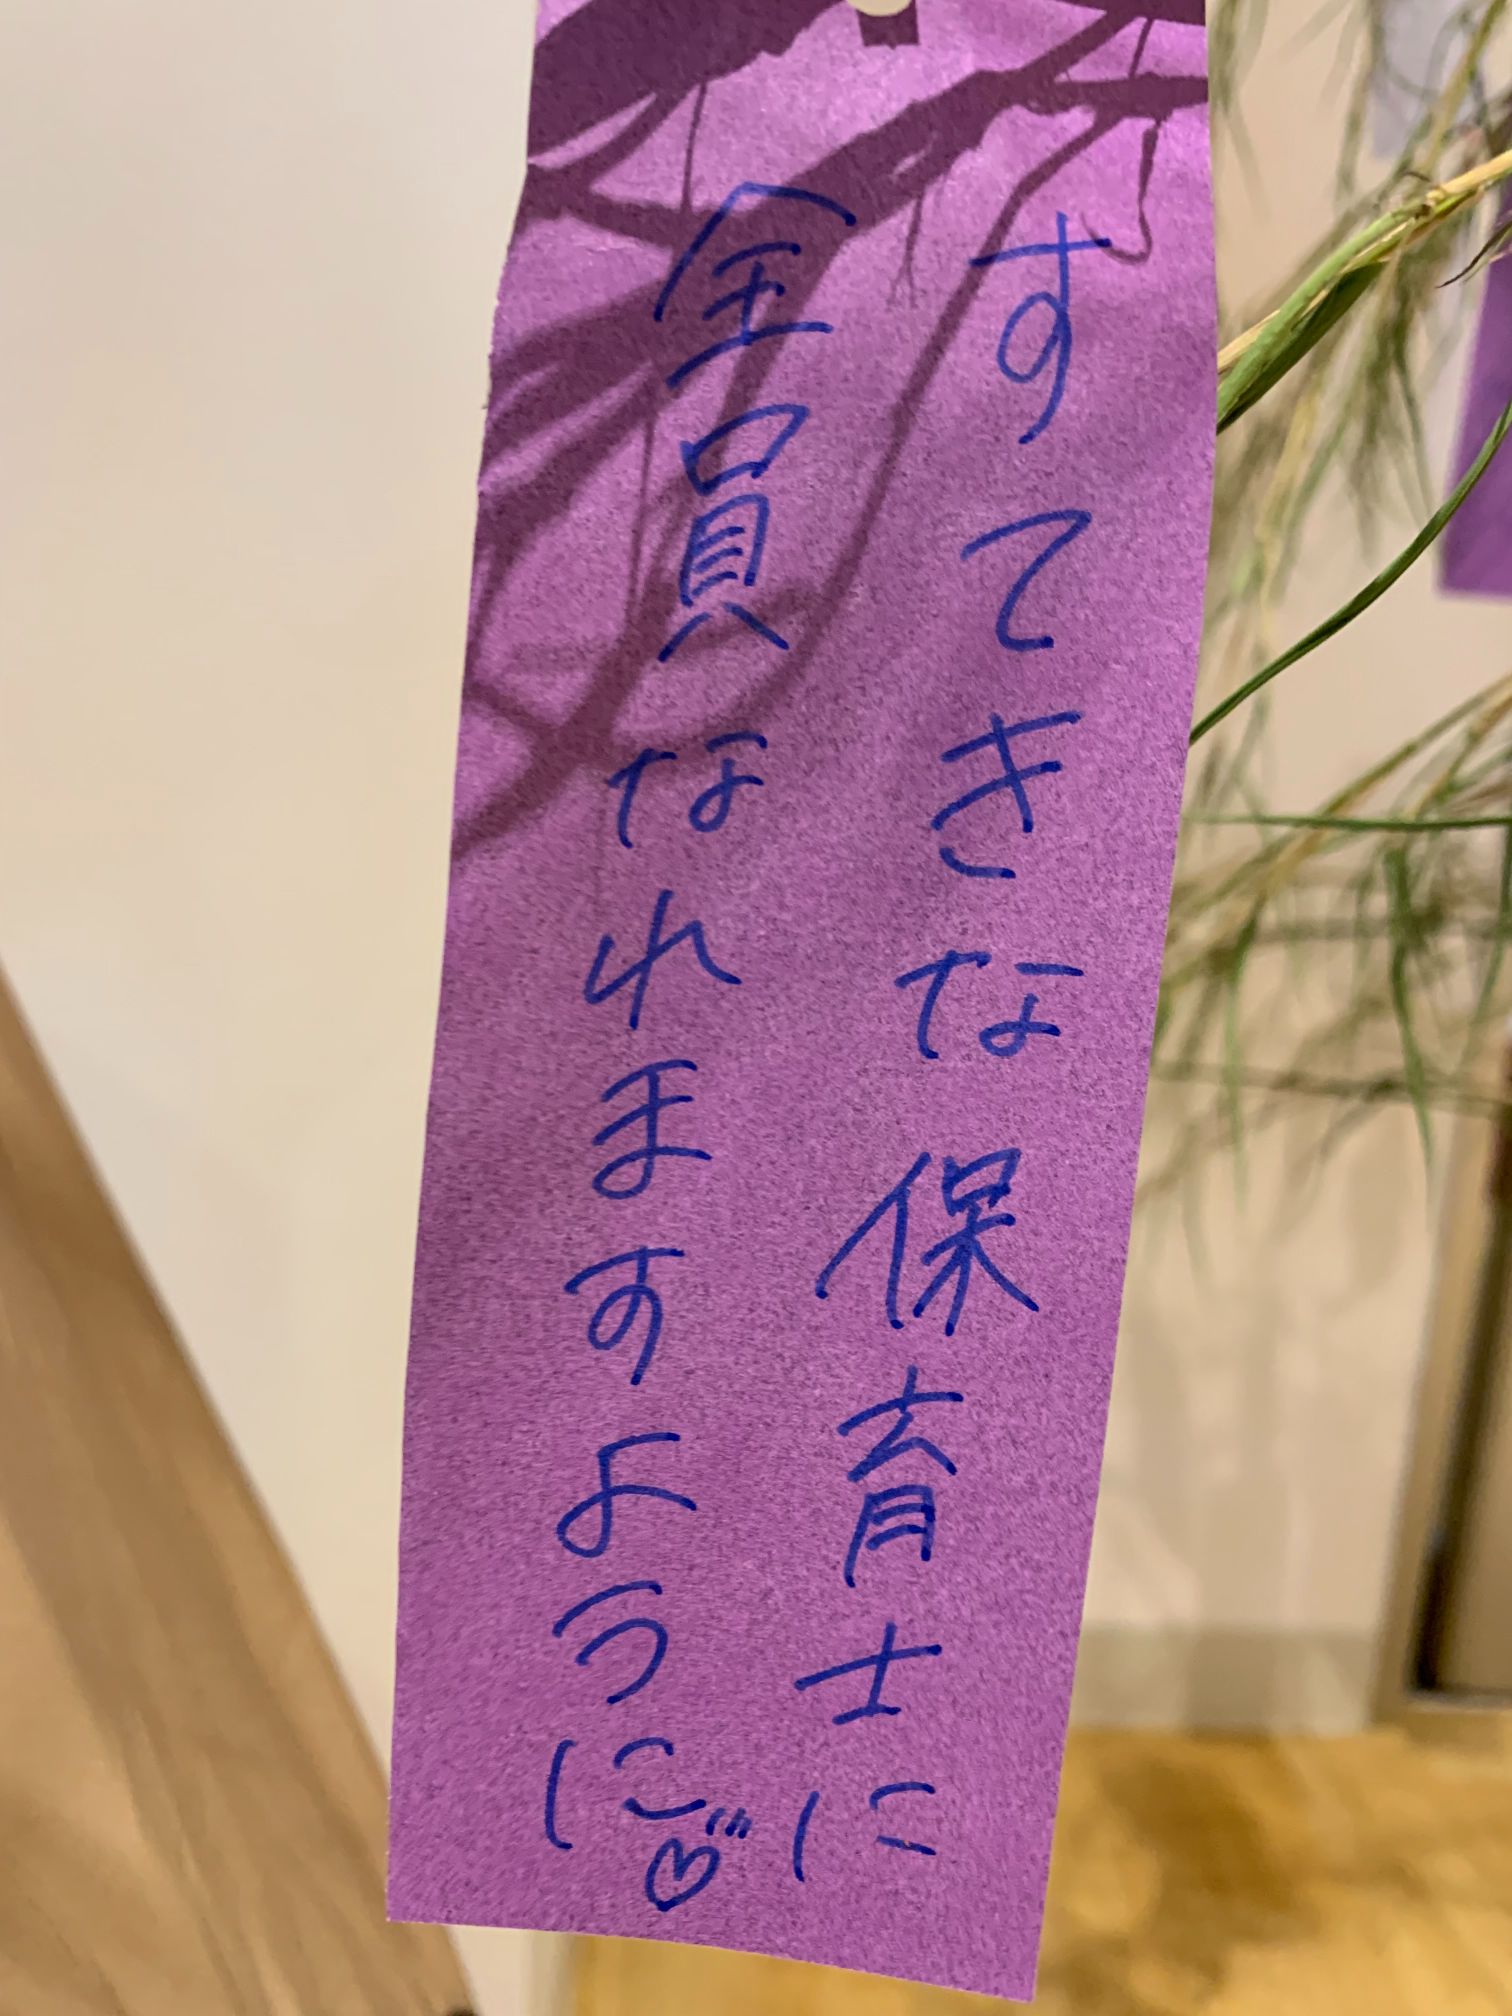 すてきな保育士に
全員なれますように♡